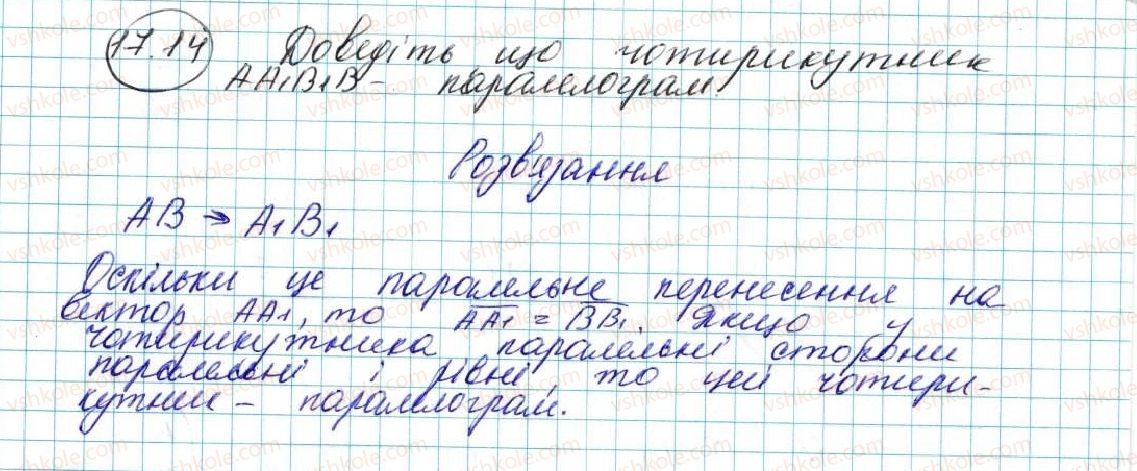 17.14 Доведіть що чотирикутник
AA₁B₁B - паралелограм.
Розв'язання
AB → A₁B₁
Оскільки це паралельне перенесення на
вектор AA₁, то AA₁ = BB₁. Якщо у
чотирикутника паралельні сторони
паралельні і рівні, то цей чотири-
кутник - паралелограм.